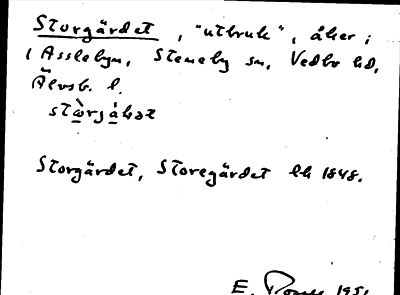 Storgärdet, "utbruk", åker i
Asslebyn, Steneby sn, Vedbo hd,
Älvsb. l.
Storgärdet, Storegärdet lh 1848.
E. 1951